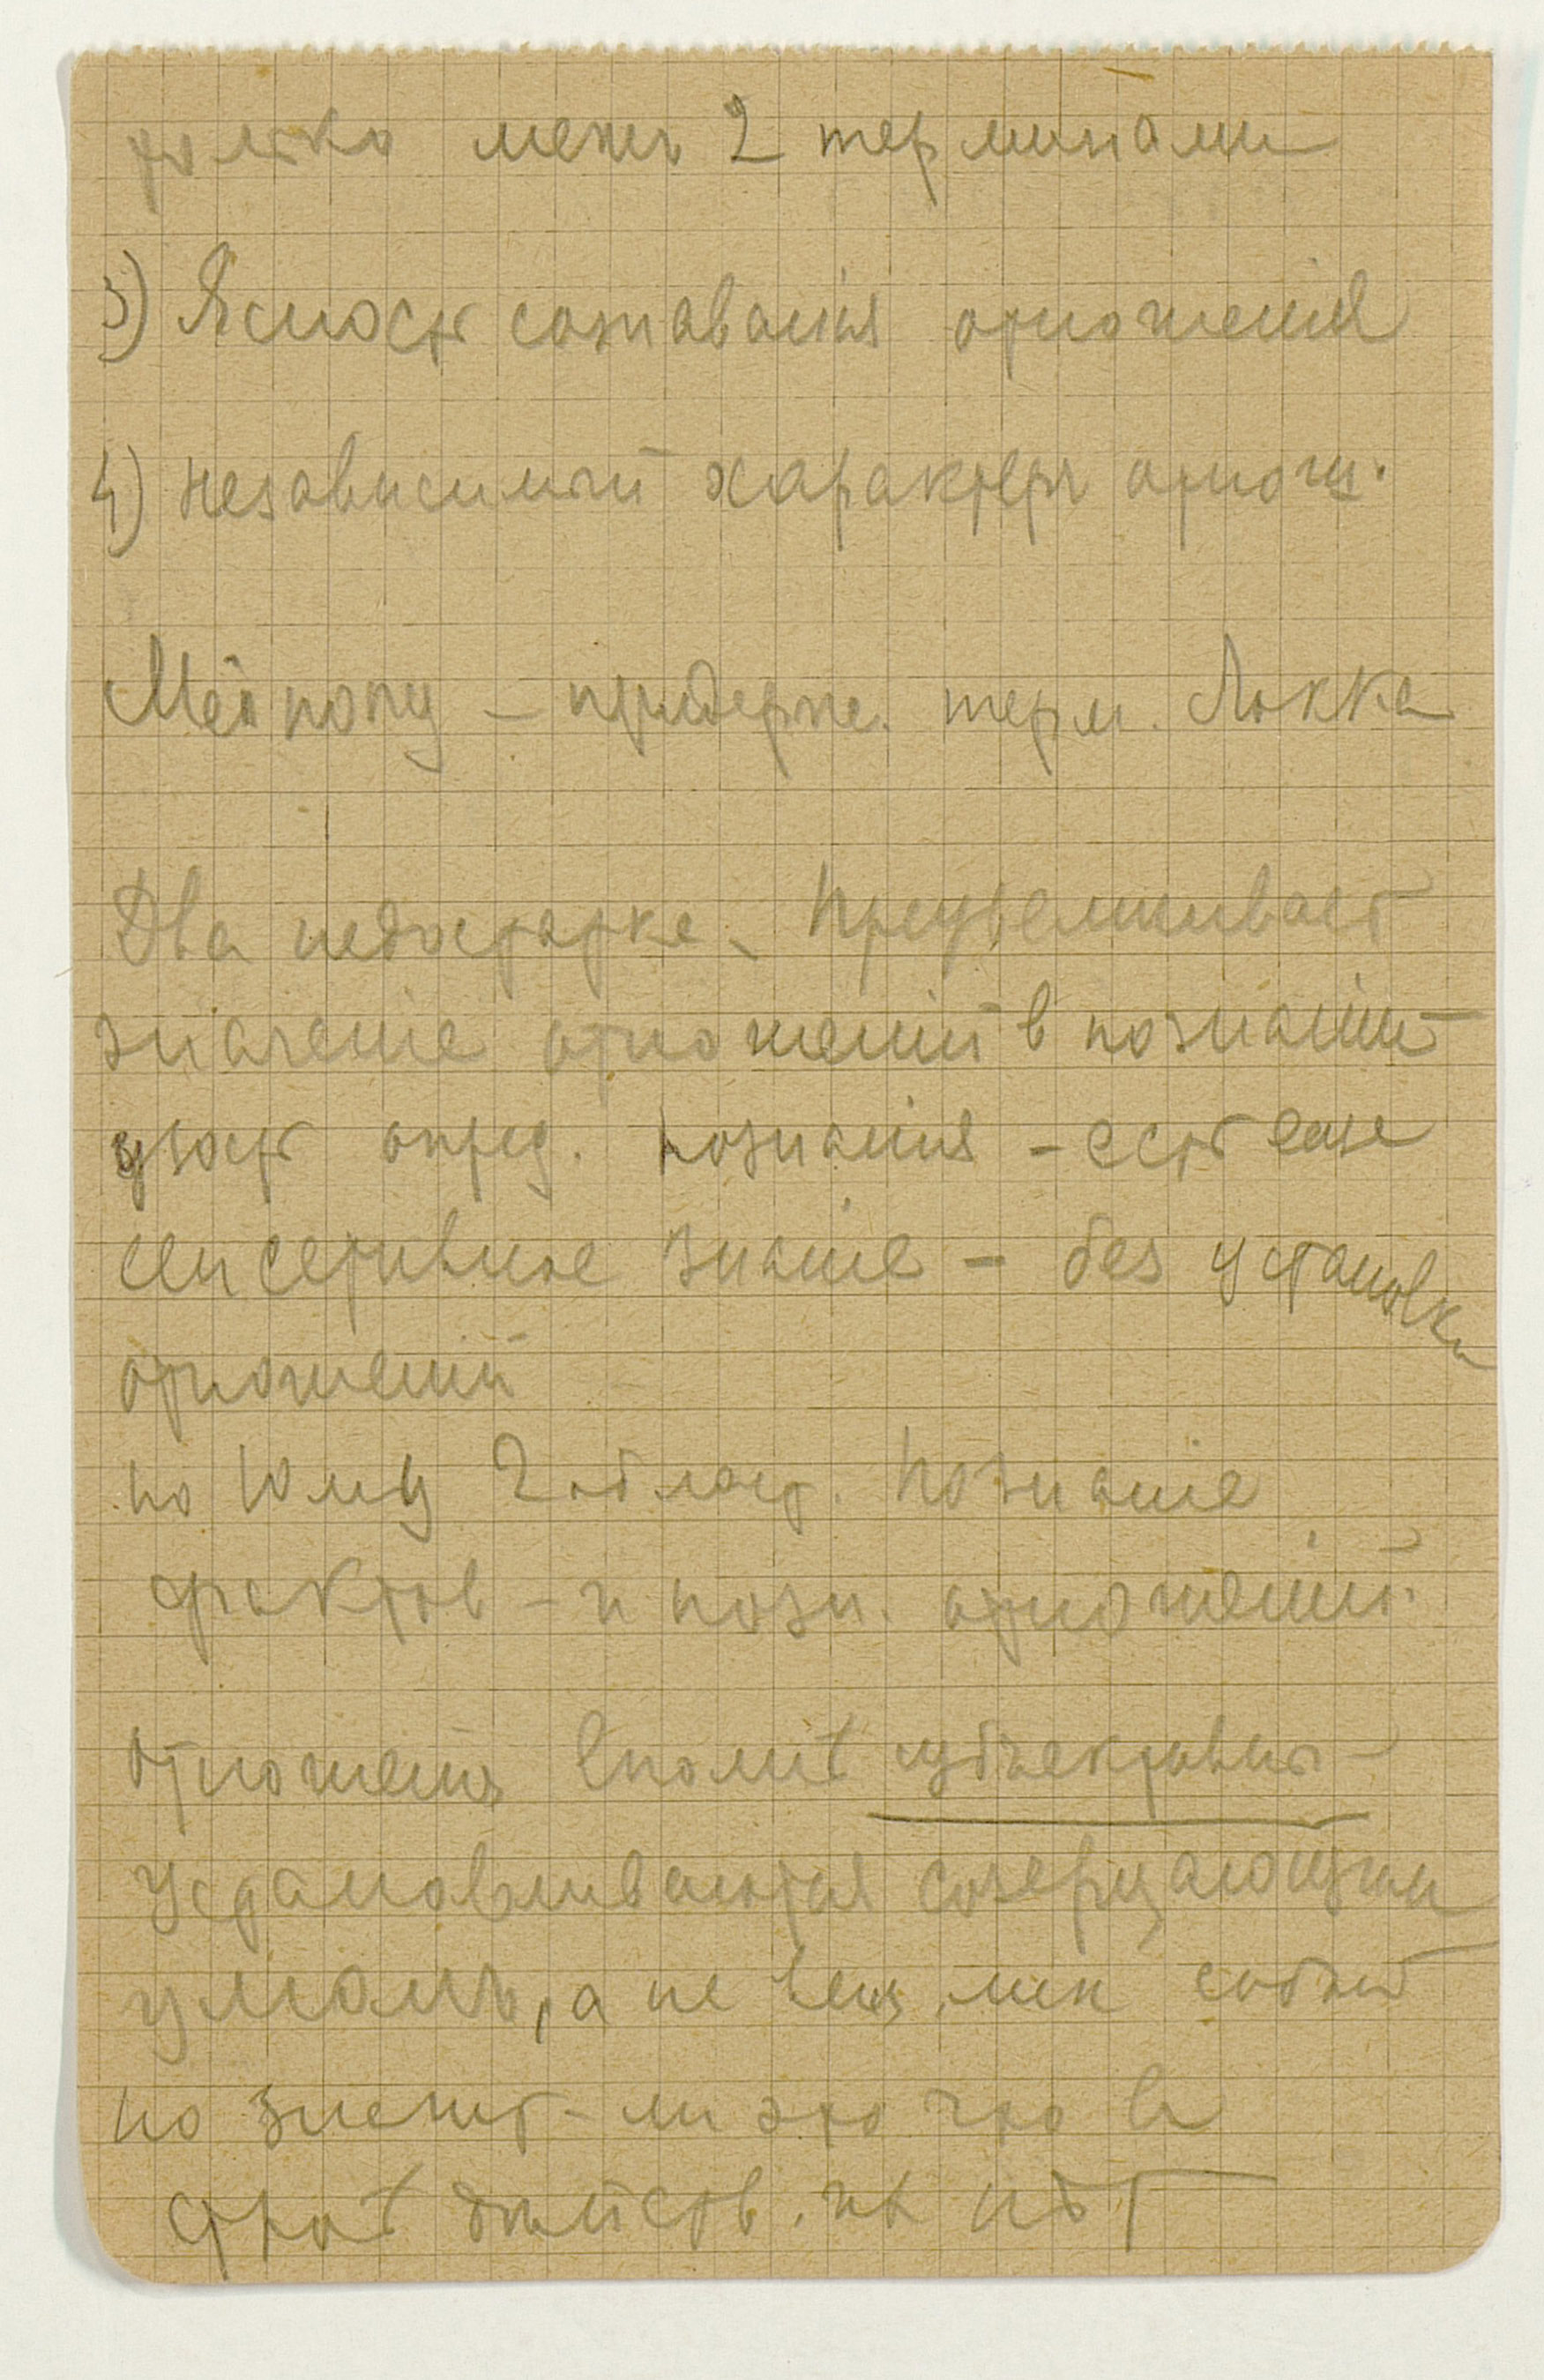 только межъ 2 терминами
3) Ясность сознаванія отношенія
4) независимый характеръ отнош.
Мейнонгу – придерж. терм. Локка
Два недостатка. Преувеличивает
значеніе отношеній в познаніи
узость опред. познанія – есть еще
сенсетивное знаніе – без установки
отношеній
по Юму 2 област. Познаніе
фактов – и позн. отношеній.
Отношенія вполнѣ субъективны
Устанавливаются созерцающим
умомъ, а не
но значит-ли это что в
дѣйств. их нѣт